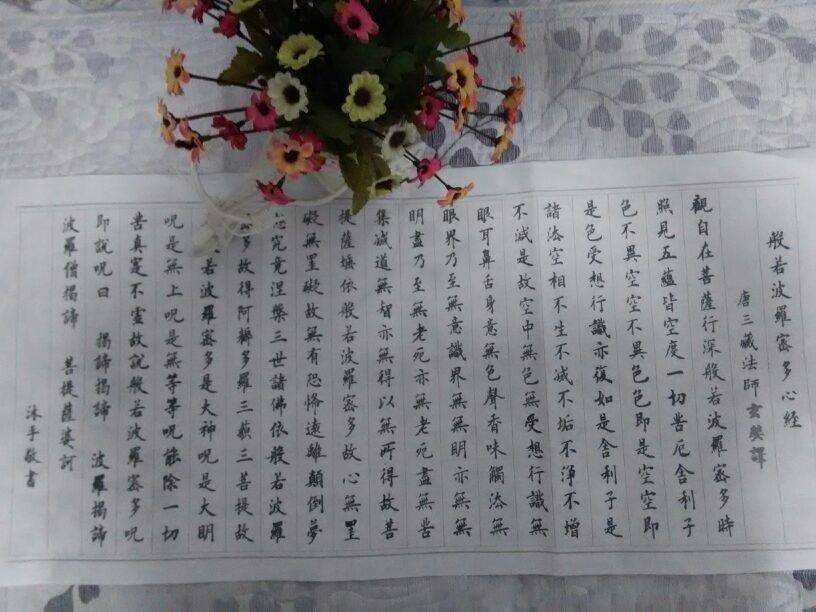 般若波羅蜜多心経
唐三藏法師玄奘譯
觀自在菩薩行深般若波羅蜜多時
照見五蘊皆空度一切苦厄舍利子
色不異空空不異色色即是空空即
是色受想行識亦復如是舍利子是
諸法空相不生不滅不垢不淨不增
不滅是故空中無色無受想行識無
眼耳鼻舌身意無色聲香味觸法無
眼界乃至無意識界無無明亦無無
明盡乃至無老死亦無老死盡無苦
集滅道無智亦無得以無所得故菩
提薩埵依般若波羅蜜多故心無罣
礙無罣礙故無有恐怖遠離顛倒夢
究竟涅槃三世諸佛依般若波羅
多故得阿耨多羅三藐三菩提故
若波羅蜜多是大神呪是大明
呪是無上呪是無等等呪能除一切
苦真實不虛故說般若波羅蜜多呪
即說呪曰 揭諦揭諦 波羅揭諦
波羅僧揭諦 菩提薩婆訶
沐手敬書